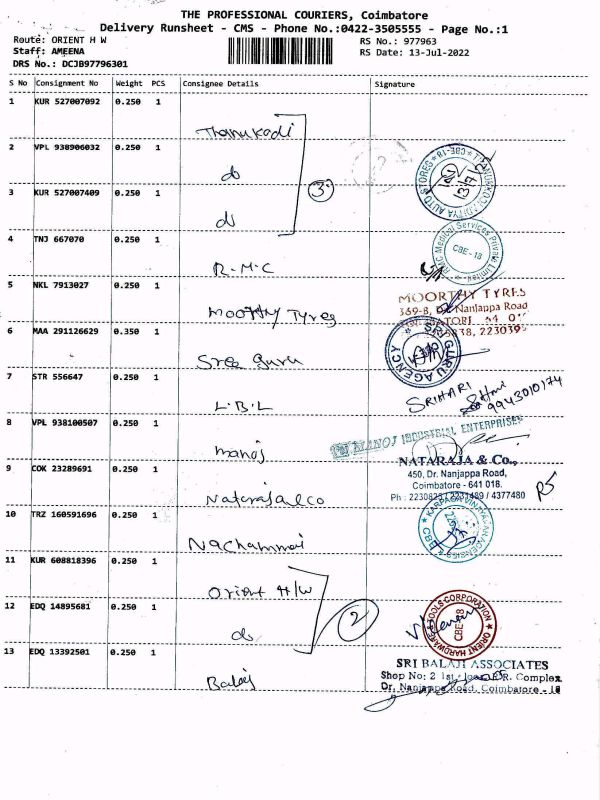 THE PROFESSIONAL COURIERS, Coimbatore
Delivery Runsheet - CMS - Phone No.:0422-3505555 - Page No.:1
Route: ORIENT H W
RS No.: 977963
Staff: AMEENA
RS Date: 13-Jul-2022
DRS No.: DCJB97796301
S No Consignment No Weight PCS Consignee Details Signature
1 KUR 527007092 0.250 1
Thanukodi
2 VPL 938906032 0.250 1
do
3 KUR 527007409 0.250 1
do
3
4 TNJ 667070 0.250 1
R.M.C
RMC Medical Services Private Limited
CBE - 18
5 NKL 7913027 0.250 1
Moorthy Tyres
MOORTHY TYRES
369-B, Dr. Nanjappa Road
6 MAA 291126629 0.350 1
Sree Guru
SRI GURU AGENCY
7 STR 556647 0.250 1
L.B.L
SRIHARI
9943010174
8 VPL 938100507 0.250 1
manoj
MANOJ INDUSTRIAL ENTERPRISES
9 COK 23289691 0.250 1
Nataraja & co
NATARAJA & Co.,
450, Dr. Nanjappa Road,
Coimbatore - 641 018.
Ph : 2230823 / 2231489 / 4377480
10 TRZ 160591696 0.250 1
Nachammai
11 KUR 608818396 0.250 1
Orient H/W
12 EDQ 14895681 0.250 1
do
2
ORIENT HARDWARE & TOOLS CORPORATION
CBE-18
13 EDQ 13392501 0.250 1
Balaji
SRI BALAJI ASSOCIATES
Shop No: 2 1st Floor Complex
Dr. Nanjappa Road, Coimbatore - 18